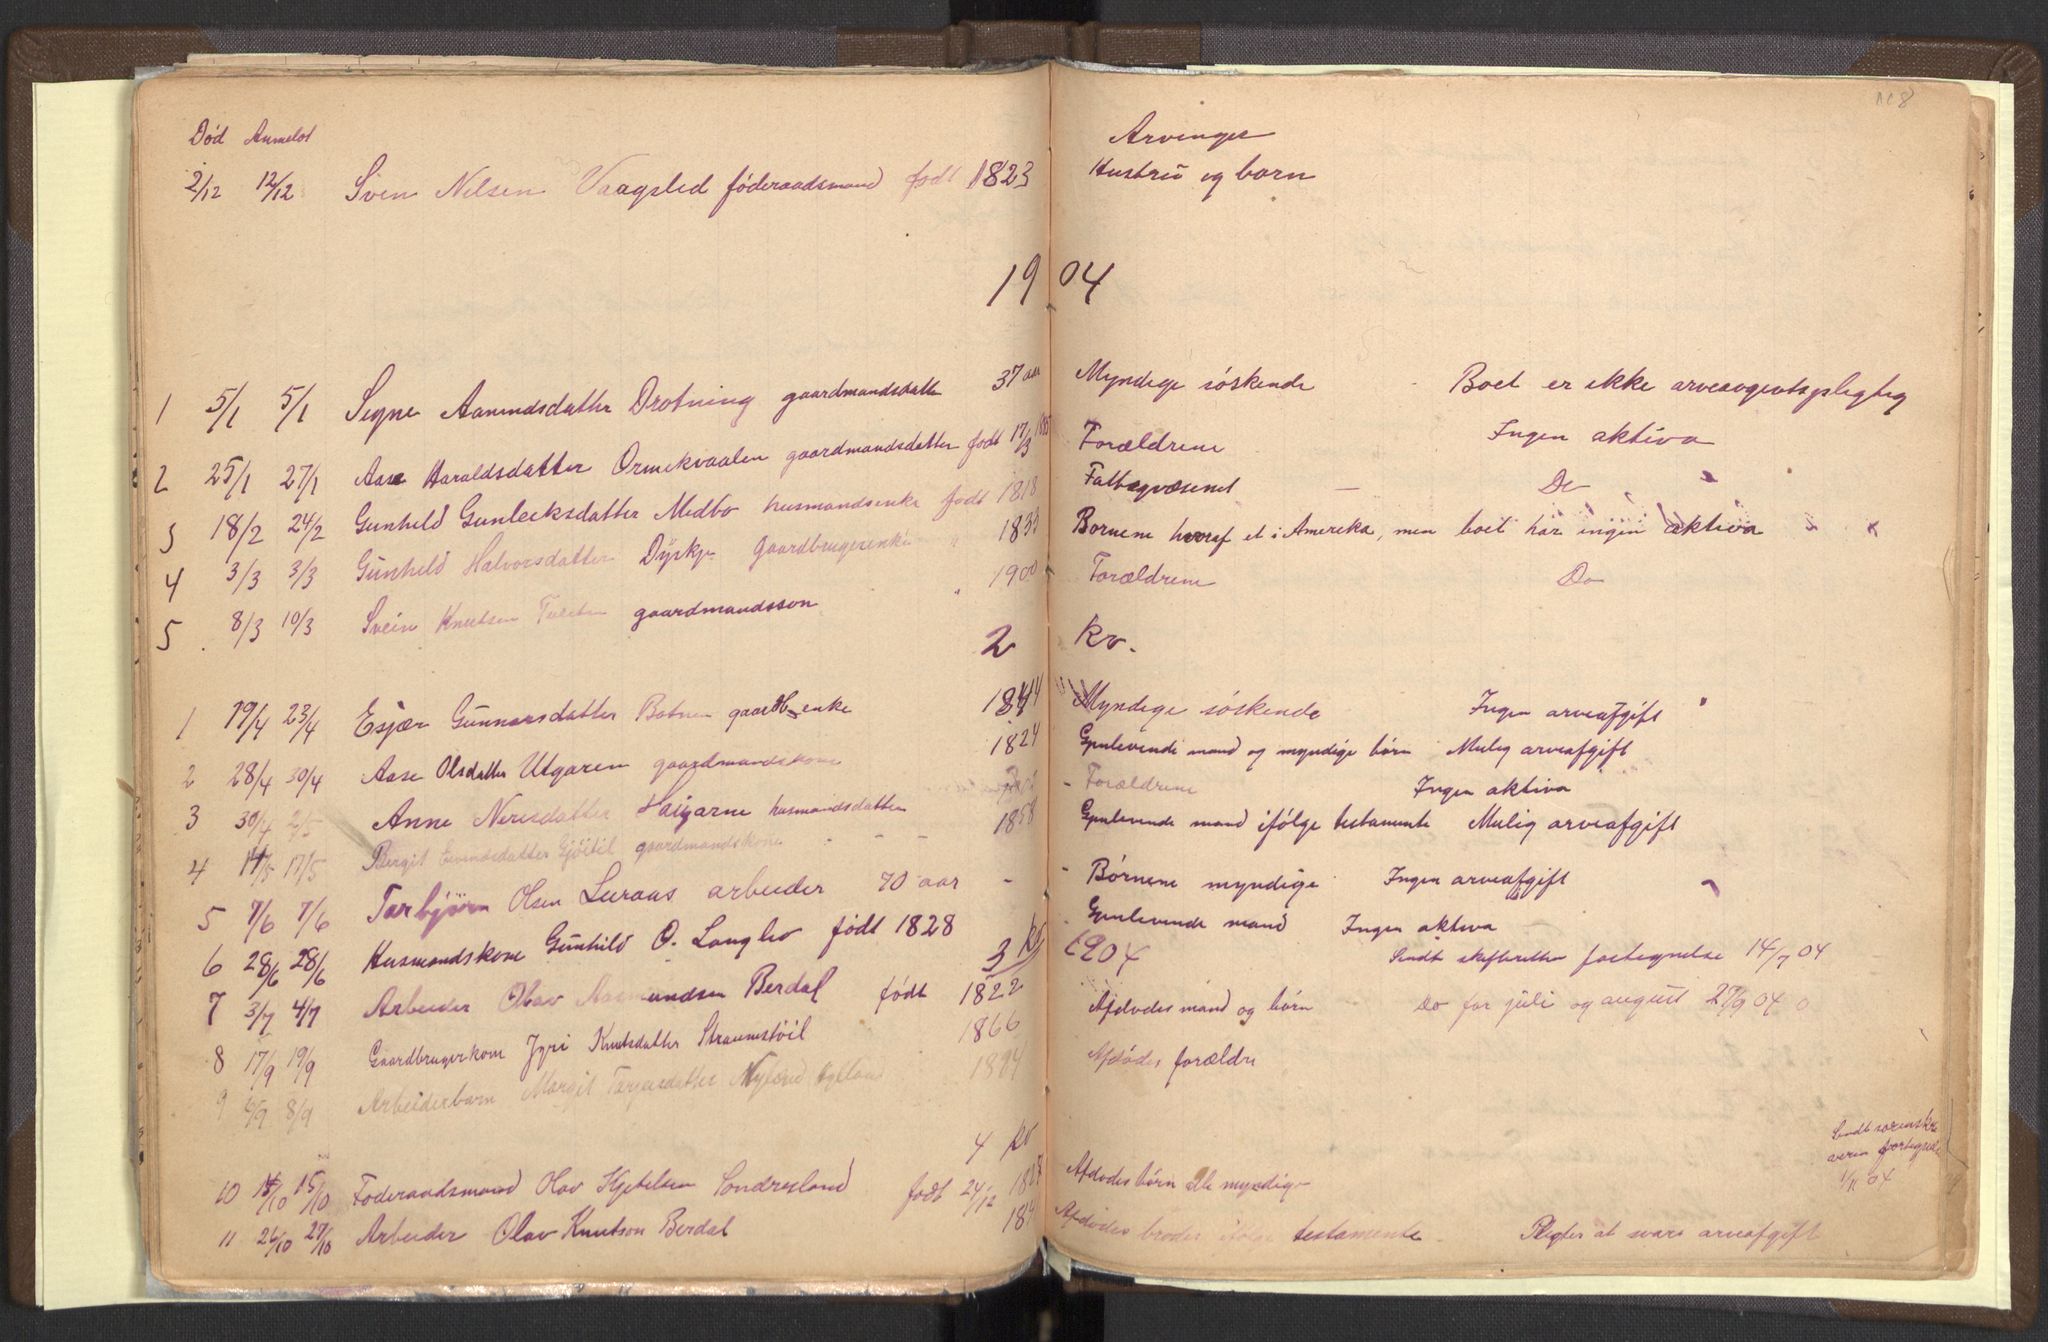 108
Død Anmeldt Arvinger
2/12 12/12 Sven Nilsen Vaagsled føderaadsmand født 1823 Hustru og børn
1904
1 5/1 5/1 Signe Aanundsdatter Drotning gaardmandsdatter 37 aar Myndige søskende Boet er ikke arveavgiftspligtig
2 25/1 27/1 Aase Haraldsdatter Ormekvaalen gaardmandsdatter født 17/3 Forældrene Ingen aktiva
3 18/2 24/2 Gunhild Gunleiksdatter Medbo husmandsenke født 1818 Fattigvæsenet — Do
4 3/3 3/3 Gunhild Halvorsdatter Dyrkje Gaardbrugerenke " 1833 Børnene hvoraf et i Amerika, men boet har ingen aktiva
5 8/3 10/3 Svein Knutsen gaardmandssøn " 1900 Forældrene Do
2 kv.
1 19/4 23/4 Gunnarsdatter Botnen enke 1844 Myndige søskende Ingen arveafgift
2 28/4 30/4 Aase Olsdatter Utgaren gaardmandskone 1824 Gjenlevende mand og myndige børn Mulig arveafgift
3 30/4 2/5 Anne husmandsdatter Forældrene Ingen aktiva
4 14/5 17/5 Bergit Eivindsdatter Gjøitil gaardmandskone - - - 1858 Gjenlevende mand ifølge testamente Mulig arveafgift
5 7/6 7/6 Tarbjørn Olsen Luraas arbeider 70 aar - - Børnene myndige Ingen arveafgift
6 28/6 28/6 Husmandskone Gunhild O. født 1828 Gjenlevende mand Ingen aktiva
3 kv 1904 Sendt skifteretten fortegnelse 14/7 04
7 3/7 4/7 Arbeider Olav Aasmundsen Berdal født 1822
8 17/9 19/9 Gaardbrugerkone Jyri Knutsdatter Straumstøil 1866 Afdødes mand og børn Do for juli og august 27/9 04
9 8/9 Arbeiderbarn Margit Tarjeisdatter 1894 Afdødes forældre
4 kv
Sendt sorenskri
veren fortegnelse
1/11 04
10 15/10 Føderaadsmand Olav Kjetilsen Søndresland født 24/12 Afdødes børn alle myndige
11 26/10 27/10 Arbeider Olav Knutson Berdal Afdødes broder ifølge testamente Pligter at svare arveafgift